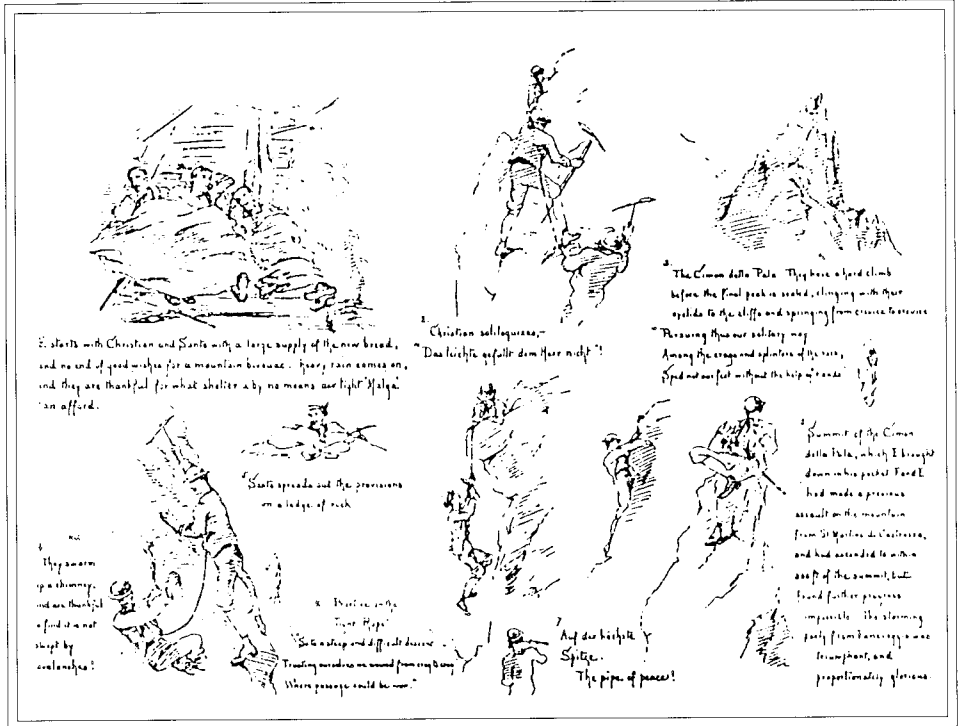 E. starts with Christian and Santo with a large supply of the new bread,
and no end of good wishes for a mountain bivouac. Heavy rain comes on,
and they are thankful for what shelter a by no means air tight "Malga"
can afford.
2.
Christian soliloquizes,—
"Das leichte gefällt dem Herr nicht"!
3.
The Cimon della Pala They have a hard climb
before the final peak is scaled, clinging with their
eyelids to the cliffs and springing from crevice to crevice
"Pursuing thus our solitary way
Among the crags and splinters of the rock,
Sped not our feet without the help of hands"
4
They swarm
up a chimney,
and are thankful
to find it is not
swept by
avalanches!
5
Santo spreads out the provisions
on a ledge of rock
8
"So to a steep and difficult descent
Trusting ourselves we wound from crag to crag
Where passage could be won."
7
Auf der höchste
Spitze.
The pipe of peace!
Summit of the Cimon
della Pala, which E brought
down in his pocket F and E
had made a previous
assault on the mountain
from St Martino de Castrozza,
and had ascended to within
of the summit, but
found further progress
impossible The storming
party from was
triumphant, and
proportionately glorious.